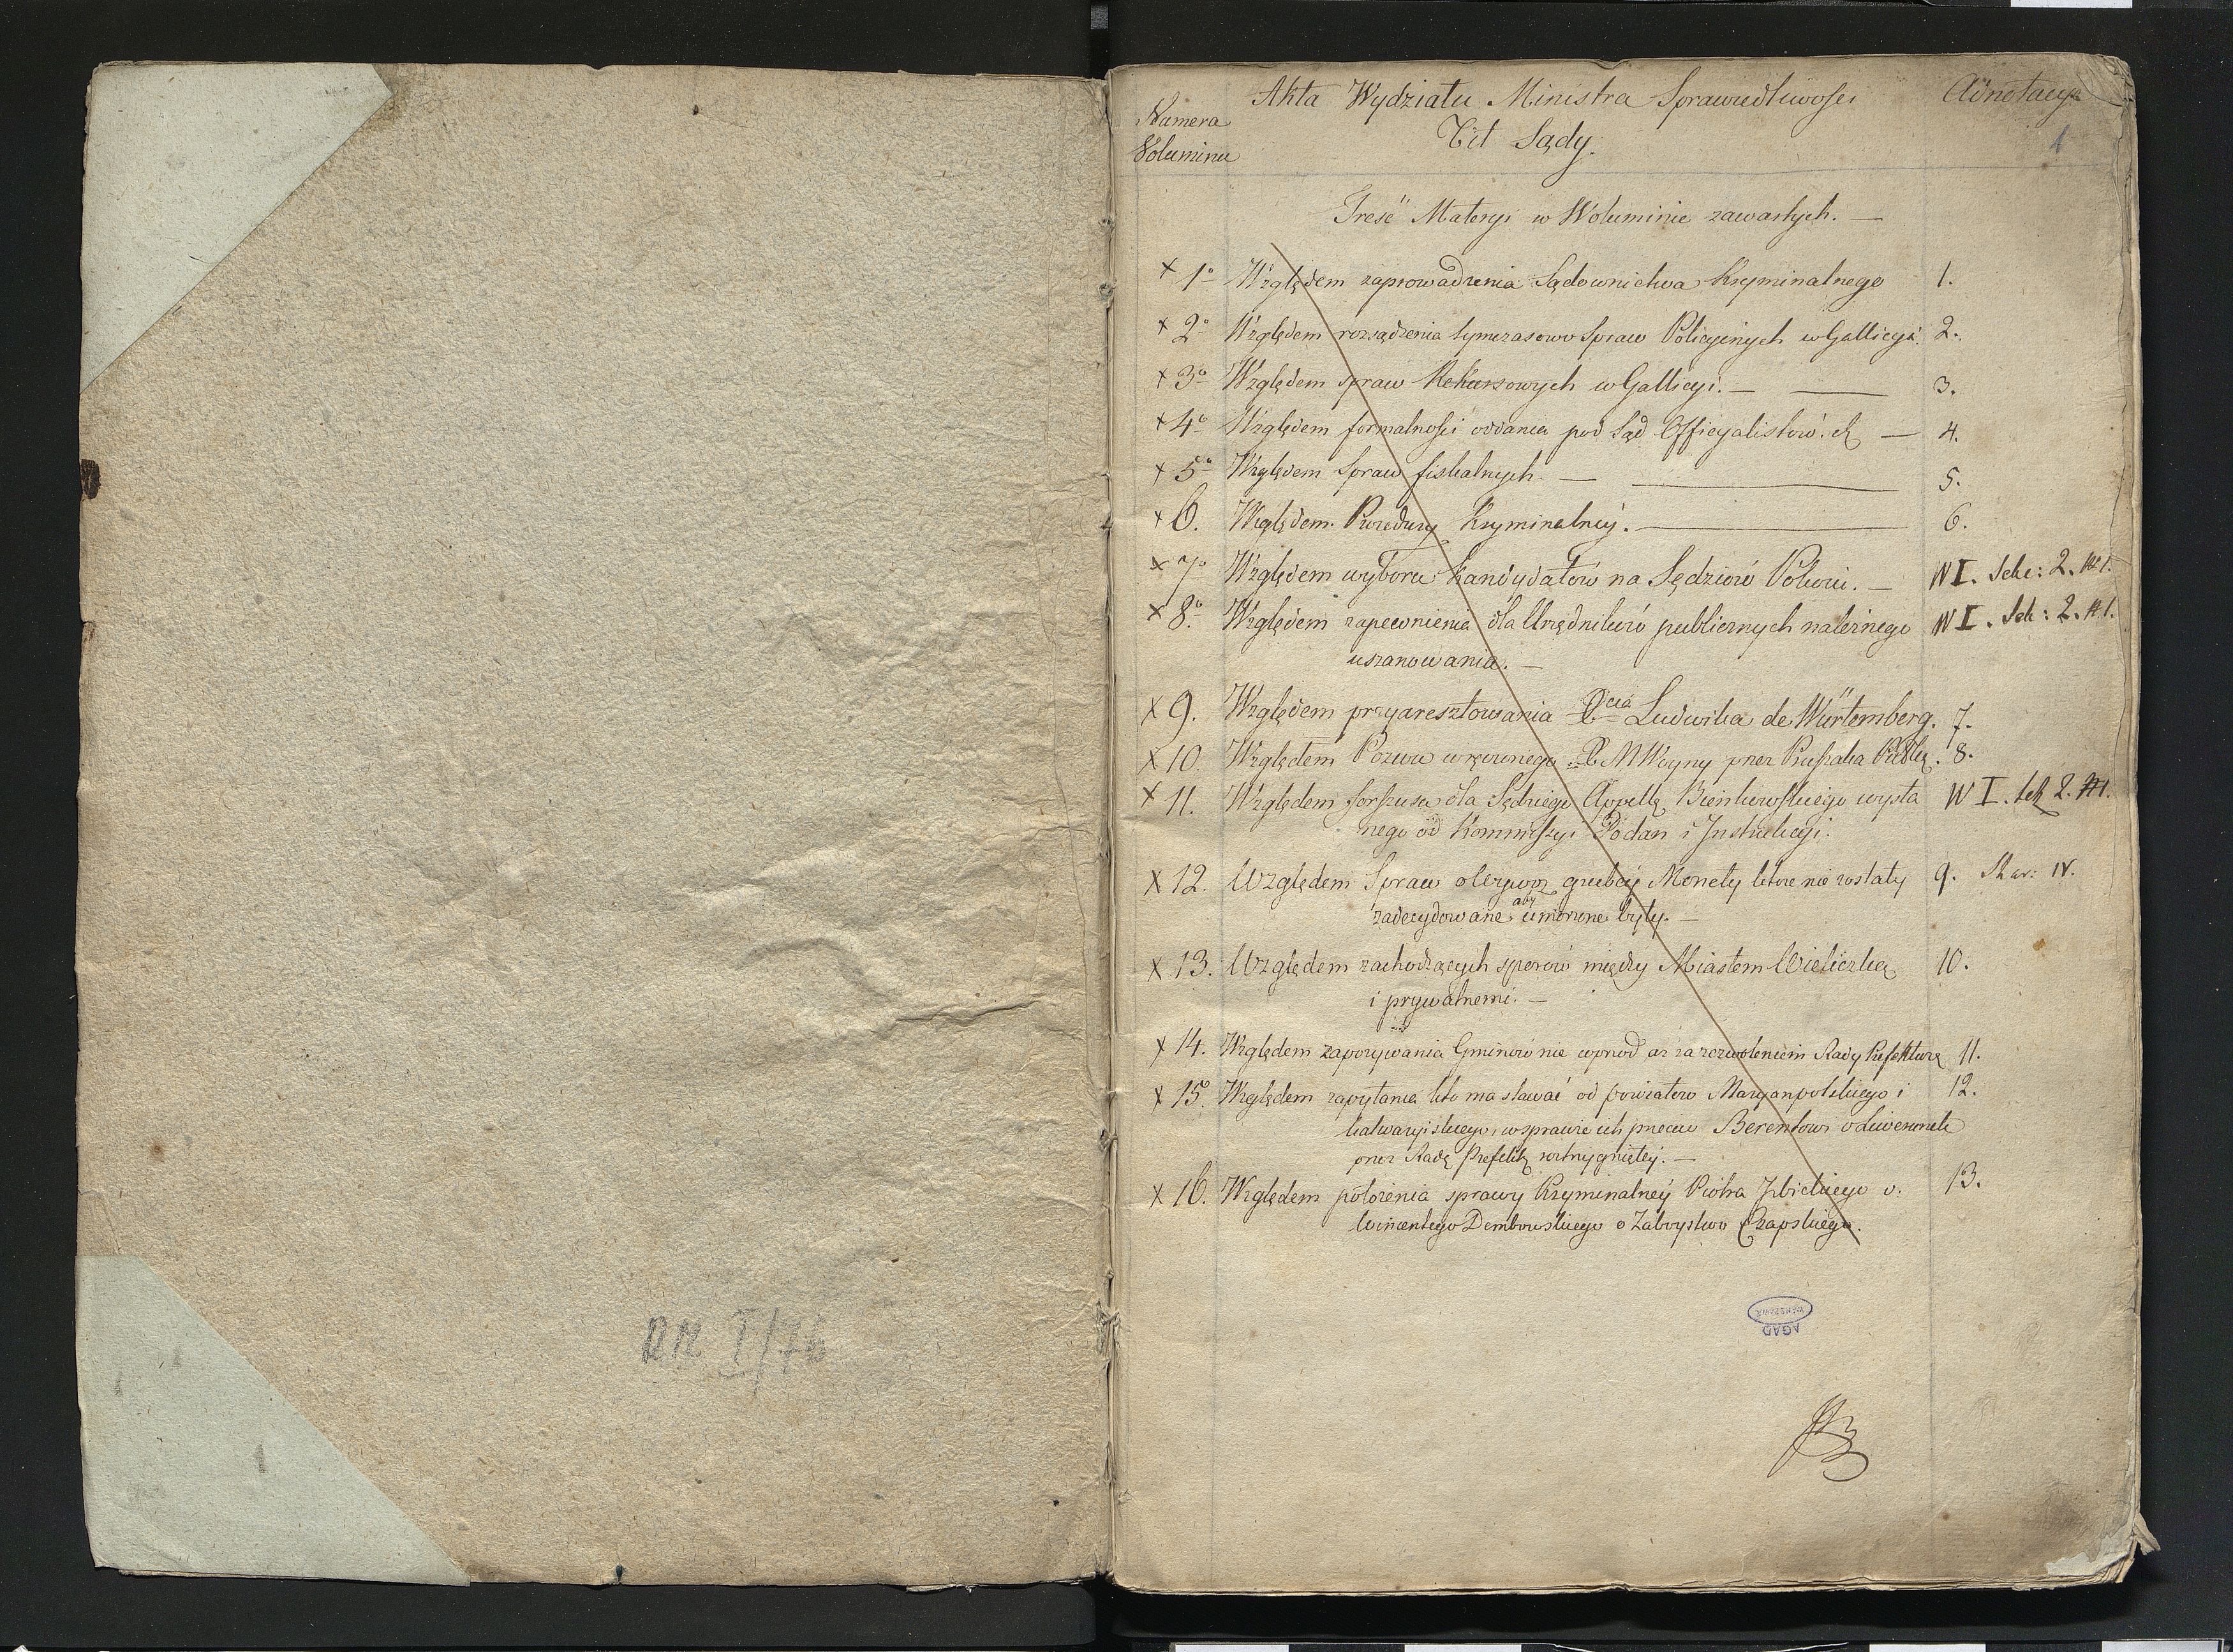 RM I/76
Numera
Voluminu
Akta Wydziału Ministra Sprawiedliwości
Tit Sądy.
Adnotacye
1
Treść Materyi w Woluminie zawartych. —
x 1o Względem zaprowadzenia Sądownictwa Kryminalnego 1.
x 2o Względem rozsądzenia tymczasowo Spraw Policyjnych w Gallicyi. 2.
x 3o Względem spraw Rekursowych w Gallicyi. — — 3.
x 4o Względem formalności oddania pod Sąd Officyalistów. — 4.
x 5o Względem Spraw fiskalnych. — — 5.
x 6. Względem Procedury Kryminalney. — 6.
x 7o Względem wyboru Kandydatów na Sędziów Pokoiu. — W I. Sek: 2. N1.
x 8o Względem zapewnienia dla Urzędników publicznych należnego W I. Sek: 2. N1.
uszanowania. —
x 9. Względem przyaresztowania Xcia Ludwika de Würtemberg. 7.
x 10. Względem Pozwu wręczonego M Woyny przez 8.
x 11. Względem forszusu dla Sędziego Appell. Bienkowskiego wysła W I. sek 2. N1.
nego od Kommissyi Podan i Instrukcyi.
x 12. Względem Spraw grubey Monety które nie zostały 9. Skar: IV.
zadecydowane aby umorzone były. —
x 13. Względem zachodzących sporów między Miastem Wieliczką 10.
i prywatnemi. —
x 14. Względem zapozywania Gminów nie wprzód aż za zezwoleniem Rady Prefektury 11.
x 15o Względem zapytania kto ma stawać od powiatów Maryanpolskiego i 12.
kalwaryiskiego, w sprawie ich przeciw Berentowi o Liwerunek
przez Radę Prefekt. roztrzygniętey. —
x 16. Względem położenia sprawy Kryminalney Piotra Zbickiego v. 13.
Wincentego Dembowskiego o Zabóystwo Czapskiego.
AGAD
WARSZAWA